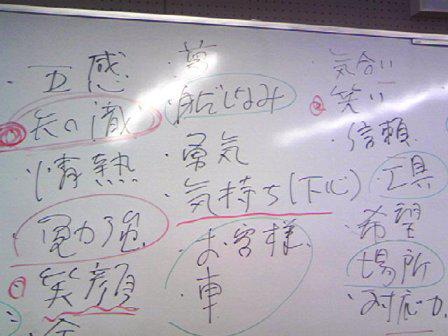 ・五感
・知識
・情熱
・勉強
・笑顔
・夢
・身だしなみ
・勇気
・気持ち(下心)
・お客様
・車
・気合い
・笑い
・信頼
・工具
・希望
・場所
・対応力